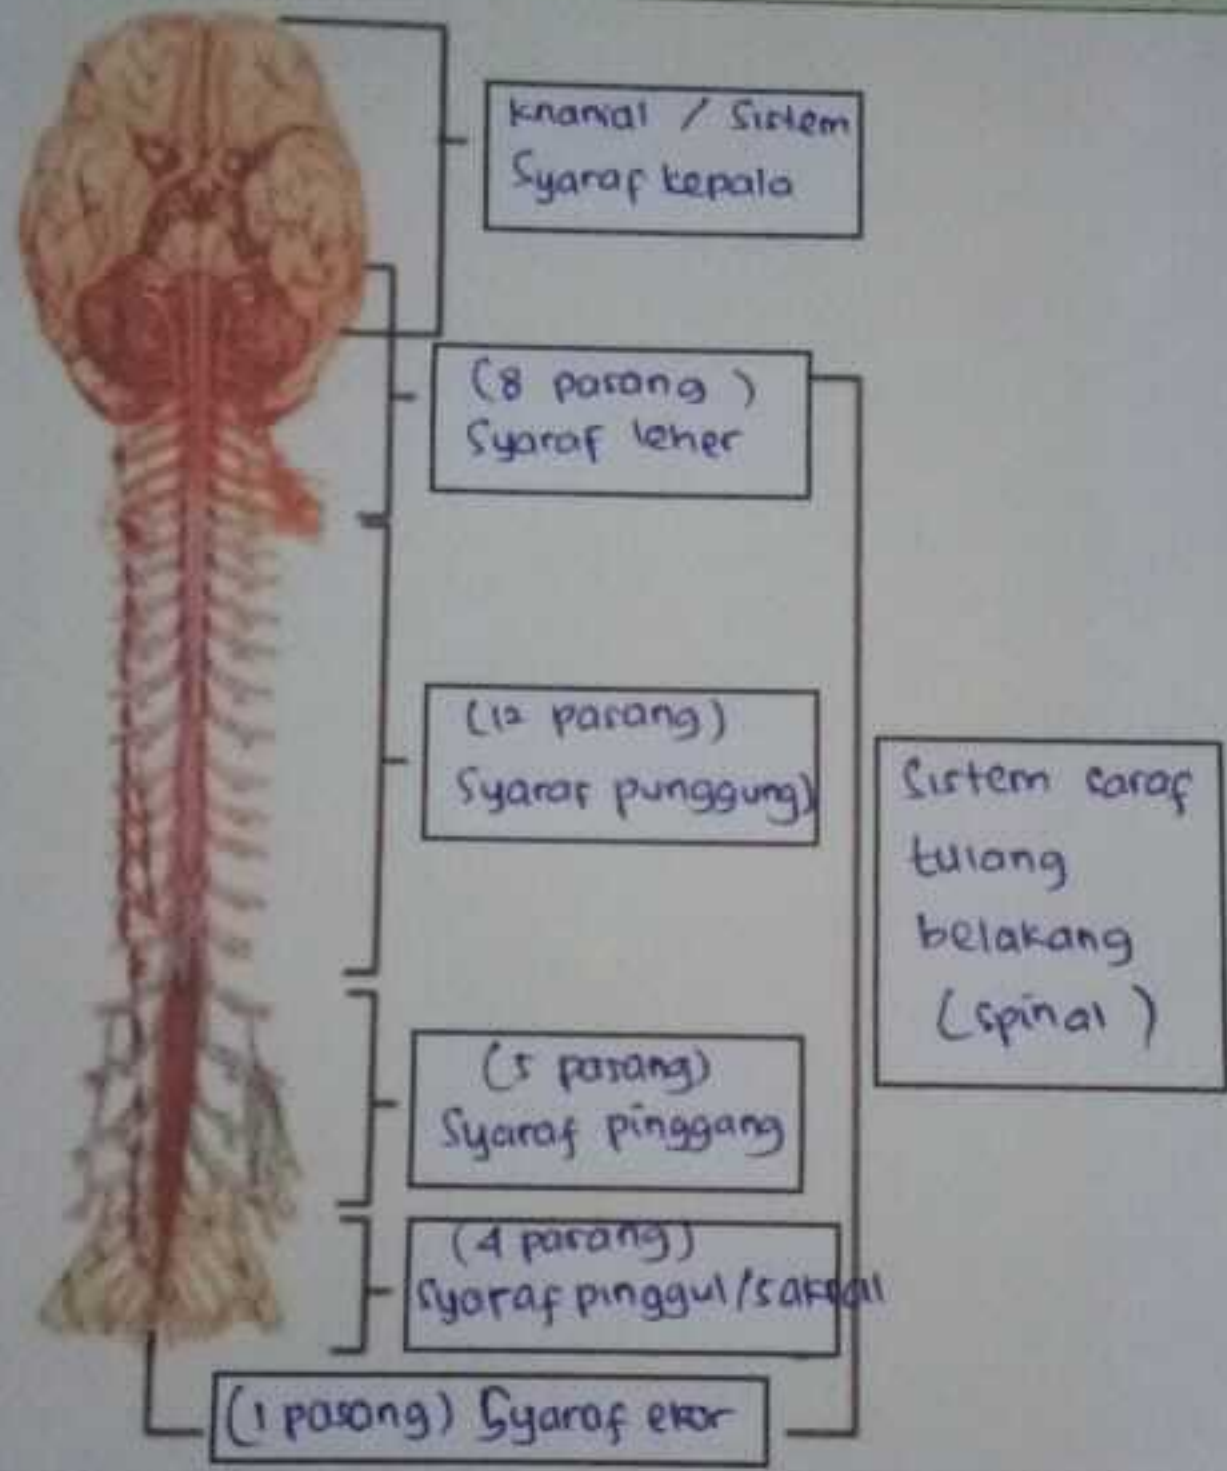 Knanial / Sistem
Syaraf kepala
(8 pasang)
Syaraf leher
(12 pasang)
Syaraf punggung)
(5 pasang)
Syaraf pinggang
(4 pasang)
Syaraf pinggul/sakral
(1 pasang) Syaraf ekor
Sistem saraf
tulang
belakang
(spinal)